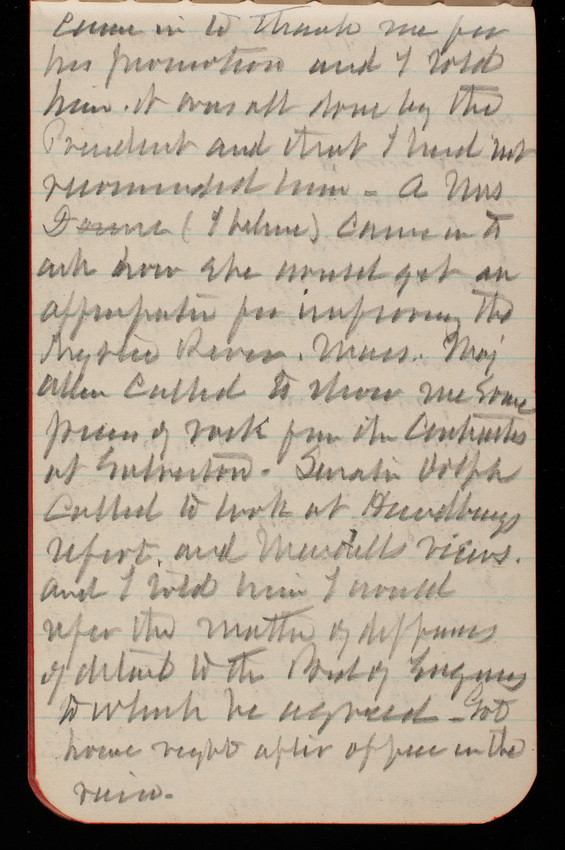 Came in to thank me for
his promotion and I told
him it was all done by the
President and that I had not
recommended him - A Mrs
(I believe) came in to
ask how she would get an
appropriation for improving the
Mystic River. Mass. Maj
Allen called to show me some
pieces of rock from the Contractors
at Galveston - Senator Dolph
called to look at Handburys
report. and Mendells views.
and I told him I would
refer the matter of differences
of detail to the Board of Engineers
to which he agreed - Got
home right after office in the
rain -